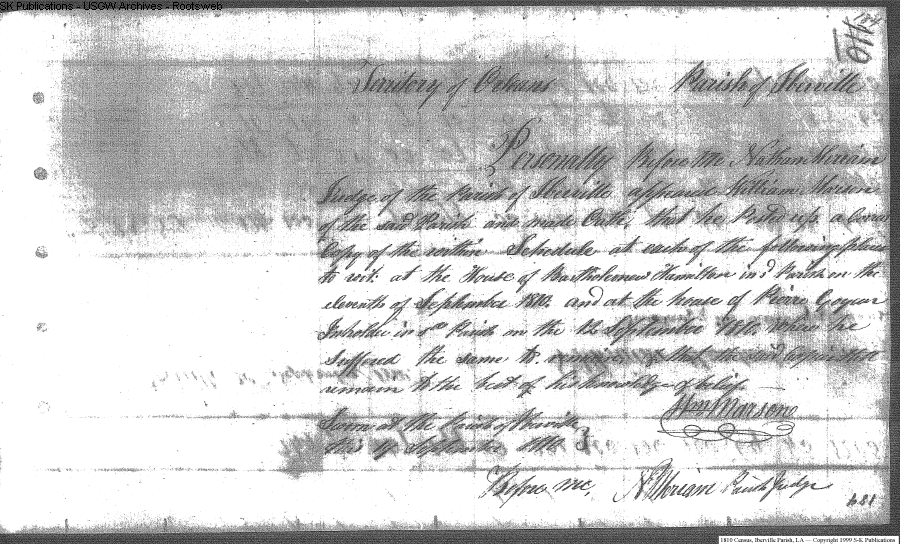 SK Publications - USGW Archives - Rootsweb
Territory of Orleans Parish of Iberville
Personally Before me Nathan Meriam
Judge of the Parish of Iberville appeared William Marson
of the said Parish and made Oath, that he Posted up a Correct
Copy of the within Schedule at each of the following places
to wit: at the House of Bartholomew Hamilton in sd Parish on the
eleventh of September 1810. and at the house of Pierre
Inholder in sd Parish on the 12 September 1810. where he
suffered the same to that the said Copies still
remain to the best of his knowledge & belief
Wm Marson
Sworn at the Parish of Iberville
this of September 1810
Before me, N Meriam Parish Judge
681
1810 Census, Iberville Parish, LA — Copyright 1999 S-K Publications